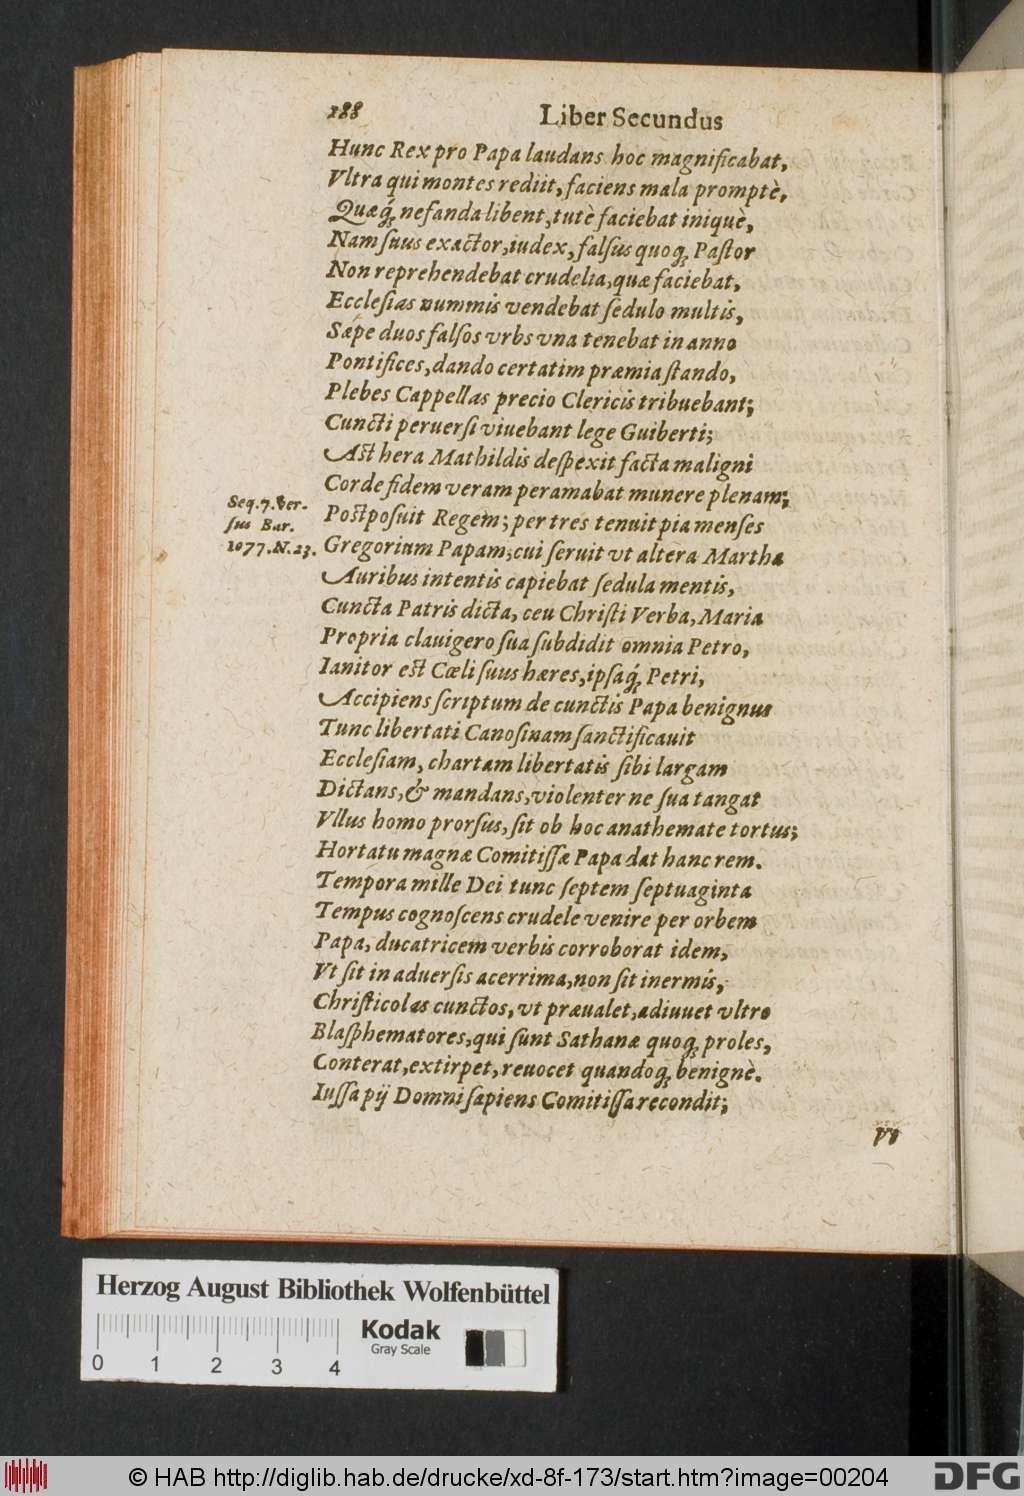 188
Liber Secundus
Hunc Rex pro Papa laudans hoc magnificabat,
Vltra qui montes rediit, faciens mala promptè,
Quæq́; nefanda libent, tutè faciebat iniquè,
Nam ſuus exactor, iudex, falſus quoq; Paſtor
Non reprehendebat crudelia, quæ faciebat,
Eccleſias nummis vendebat ſedulo multis,
Sæpe duos falſos vrbs vna tenebat in anno
Pontifices, dando certatim præmia ſtando,
Plebes Cappellas precio Clericis tribuebant;
Cuncti peruerſi viuebant lege Guiberti;
Aſt hera Mathildis deſpexit facta maligni
Corde fidem veram peramabat munere plenam;
Poſtpoſuit Regem; per tres tenuit pia menſes
Seq. 7. Ver-
ſus Bar.
1077. N. 23.
Gregorium Papam; cui ſeruit vt altera Martha
Auribus intentis capiebat ſedula mentis,
Cuncta Patris dicta, ceu Chriſti Verba, Maria
Propria clauigero ſua ſubdidit omnia Petro,
Ianitor eſt Cœli ſuus hæres, ipſaq́; Petri,
Accipiens ſcriptum de cunctis Papa benignus
Tunc libertati Canoſinam ſanctificauit
Eccleſiam, chartam libertatis ſibi largam
Dictans, & mandans, violenter ne ſua tangat
Vllus homo prorſus, ſit ob hoc anathemate tortus;
Hortatu magnæ Comitiſſæ Papa dat hanc rem.
Tempora mille Dei tunc ſeptem ſeptuaginta
Tempus cognoſcens crudele venire per orbem
Papa, ducatricem verbis corroborat idem,
Vt ſit in aduerſis acerrima, non ſit inermis,
Chriſticolas cunctos, vt præualet, adiuuet vltro
Blaſphematores, qui ſunt Sathanæ quoq; proles,
Conterat, extirpet, reuocet quandoq; benignè.
Iuſſa pij Domni ſapiens Comitiſſa recondit;
Vt
Herzog August Bibliothek Wolfenbüttel
0 1 2 3 4
Kodak
Gray Scale
© HAB http://diglib.hab.de/drucke/xd-8f-173/start.htm?image=00204
DFG